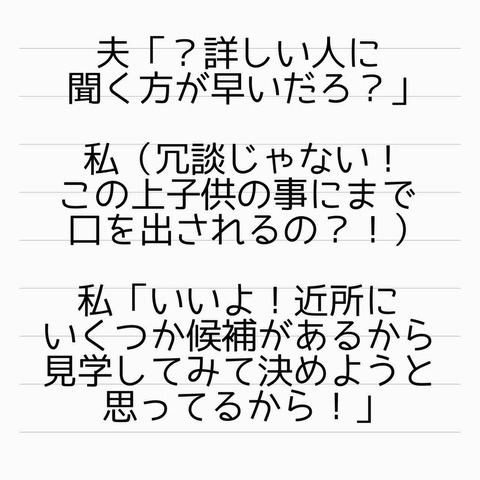 夫「？詳しい人に
聞く方が早いだろ？」
私（冗談じゃない！
この上子供の事にまで
口を出されるの？！）
私「いいよ！近所に
いくつか候補があるから
見学してみて決めようと
思ってるから！」